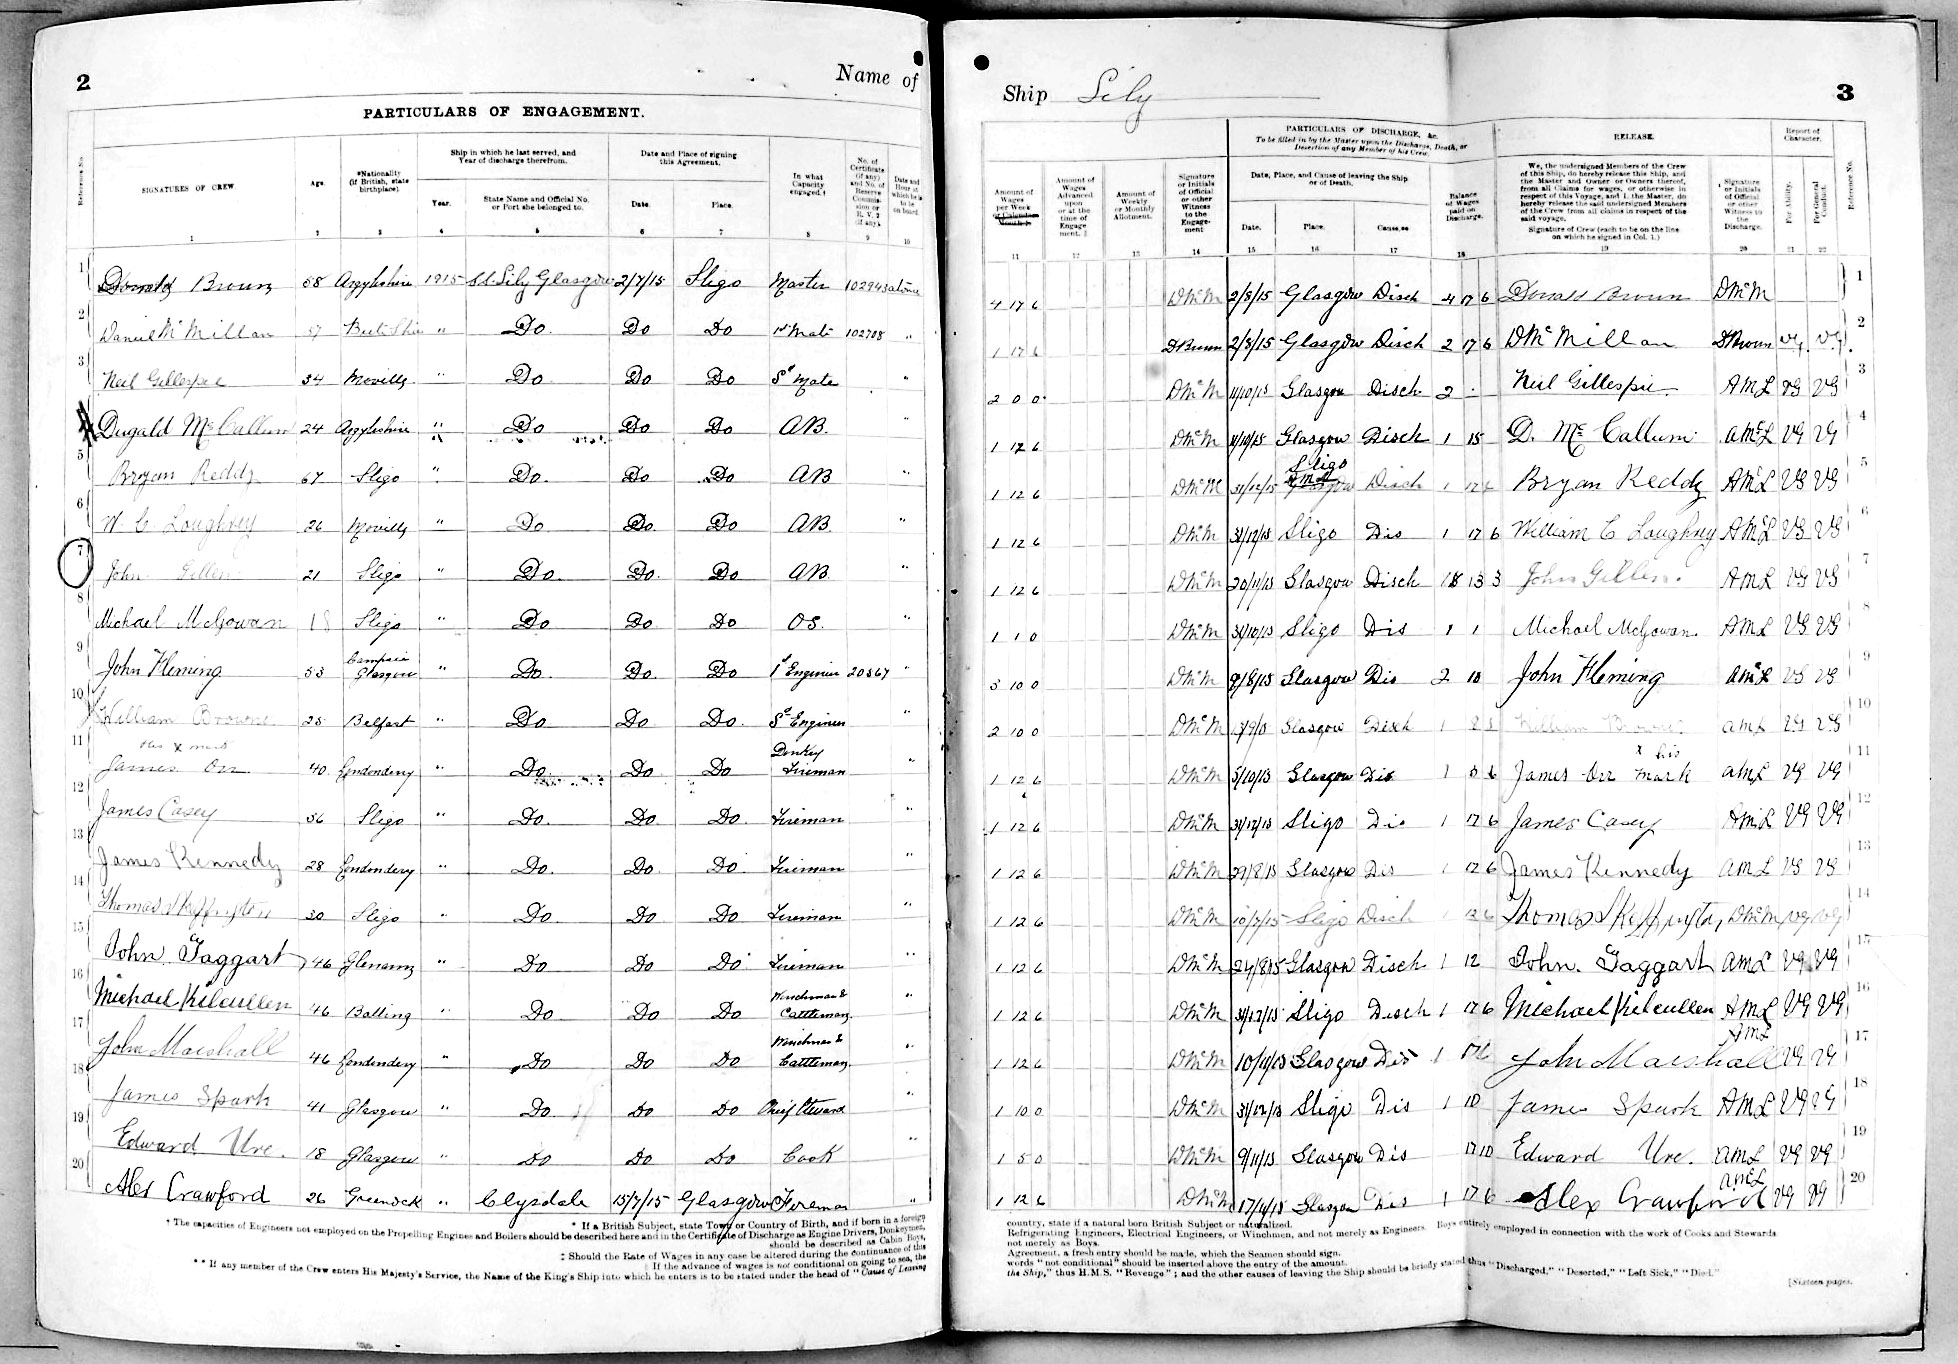 2
Name of
PARTICULARS OF ENGAGEMENT.
Reference No.
SIGNATURES OF CREW
Age.
*Nationality (if British, state birthplace).
Ship in which he last served, and Year of discharge therefrom.
Year.
State Name and Official No. or Port she belonged to.
Date and Place of signing this Agreement.
Date.
Place.
In what Capacity engaged.†
No. of Certificate (if any) and No. of Reserve Commission or R. V. 2 (if any).
Date and Hour at which he is to be on board.
1 2 3 4 5 6 7 8 9 10
1 Donald Brown 58 Argyleshire 1915 S.S. Lily Glasgow 2/7/15 Sligo Master 102943 at once
2 Daniel McMillan 57 Bute Shire " Do Do Do 1st Mate 102708 "
3 Neil Gillespie 34 Moville " Do Do Do 2d Mate "
4 Dugald McCallum 24 Argyleshire " Do Do Do AB.
5 Bryan Reddy 67 Sligo " Do. Do Do AB "
6 W C Loughrey 26 Moville " Do Do. Do AB. "
7 John Gillen 21 Sligo " Do. Do. Do AB.
8 Michael McGowan 18 Sligo " Do Do Do OS. "
9 John Fleming 53 Campsie Glasgow " Do. Do Do 1st Engineer 20367 "
10 William Browne 25 Belfast " Do Do Do. 2d Engineer "
his x mark
11 James Orr 40 Londonderry " Do Do Do Donkey Fireman "
12 James Casey 56 Sligo " Do. Do Do Fireman "
13 James Kennedy 28 Londonderry " Do. Do. Do Fireman "
14 Thomas Skeffington 30 Sligo " Do. Do Do Fireman "
15 John. Taggart 46 Glenarm " Do Do Do Fireman "
16 Michael Kilcullen 46 Ballina " Do Do Do Winchman & Cattleman "
17 John Marshall 46 Londonderry " Do Do Do Winchman & Cattleman "
18 James Spark 41 Glasgow " Do Do Do Chief Steward "
19 Edward Ure. 18 Glasgow " Do Do Do Cook "
20 Alex Crawford 26 Greenock " Clysdale 15/7/15 Glasgow Fireman "
* If a British Subject, state Town or Country of Birth, and if born in a foreign
† The capacities of Engineers not employed on the Propelling Engines and Boilers should be described here and in the Certificate of Discharge as Engine Drivers, Donkeymen,
should be described as Cabin Boys,
‡ Should the Rate of Wages in any case be altered during the continuance of this
If the advance of wages is not conditional on going to sea, the
** If any member of the Crew enters His Majesty's Service, the Name of the King's Ship into which he enters is to be stated under the head of "Cause of Leaving
Ship Lily
3
PARTICULARS OF DISCHARGE, &c.
To be filled in by the Master upon the Discharge, Death, or Desertion of any Member of his Crew.
RELEASE.
Report of Character.
Amount of Wages per Week or Calendar Month.‡
Amount of Wages Advanced upon or at the time of Engagement.
Amount of Weekly or Monthly Allotment.
Signature or Initials of Official or other Witness to the Engagement
Date, Place, and Cause of leaving the Ship or of Death.
Date.
Place.
Cause.**
Balance of Wages paid on Discharge.
We, the undersigned Members of the Crew of this Ship, do hereby release this Ship, and the Master and Owner or Owners thereof, from all Claims for wages, or otherwise in respect of this Voyage, and I, the Master, do hereby release the said undersigned Members of the Crew from all claims in respect of the said voyage.
Signature of Crew (each to be on the line on which he signed in Col. 1.)
Signature or Initials of Official or other Witness to the Discharge.
For Ability.
For General Conduct.
Reference No.
11 12 13 14 15 16 17 18 19 20 21 22
4 17 6 DMcM 2/8/15 Glasgow Disch 4 17 6 Donald Brown DMcM 1
1 17 6 DBrown 2/8/15 Glasgow Disch 2 17 6 DMcMillan DBrown VG. VG. 2
2 0 0 DMcM 11/10/15 Glasgow Disch 2 - Neil Gillespie AML VG VG 3
1 12 6 DMcM Glasgow Disch 1 15 D. McCallum AMcL VG VG 4
1 12 6 DMcM 31/12/15 Sligo Disch 1 12 6 Bryan Reddy AMcL VG VG 5
1 12 6 DMcM 31/12/15 Sligo Dis 1 17 6 William C Loughrey AMcL VG VG 6
1 12 6 DMcM 20/11/15 Glasgow Disch 13 3 John Gillen. AML VG VG 7
1 1 0 DMcM 31/10/15 Sligo Dis 1 1 Michael McGowan. AML VG VG 8
3 10 0 DMcM Glasgow Dis 2 10 John Fleming AMcL VG VG 9
2 10 0 DMcM 13/9/15 Glasgow Disch 1 William Browne. AML VG VG 10
1 12 6 DMcM 5/10/15 Glasgow Dis 1 James Orr x his mark AML VG VG 11
1 12 6 DMcM 31/12/15 Sligo Dis 1 17 6 James Casey AML VG VG 12
1 12 6 DMcM 29/8/15 Glasgow Dis 1 12 6 James Kennedy AML VG VG 13
1 12 6 DMcM 10/7/15 Sligo Disch 1 12 6 Thomas Skeffington, DMcM VG VG 14
1 12 6 DMcM 24/8/15 Glasgow Disch 1 12 John. Taggart AML VG VG 15
1 12 6 DMcM 31/12/15 Sligo Disch 1 17 6 Michael Kilcullen AML VG VG 16
1 12 6 DMcM 10/11/15 Glasgow Dis 1 17 6 John Marshall AML VG VG 17
1 10 0 DMcM 31/12/15 Sligo Dis 1 10 James Spark AML VG VG 18
1 5 0 DMcM 9/11/15 Glasgow Dis 17 10 Edward Ure. AML VG VG 19
1 12 6 DMcM 17/11/15 Glasgow Dis 1 17 6 Alex Crawford AMcL VG VG 20
country, state if a natural born British Subject or naturalized.
Refrigerating Engineers, Electrical Engineers, or Winchmen, and not merely as Engineers. Boys entirely employed in connection with the work of Cooks and Stewards
not merely as Boys.
Agreement, a fresh entry should be made, which the Seamen should sign.
words "not conditional" should be inserted above the entry of the amount.
the Ship," thus H.M.S. "Revenge"; and the other causes of leaving the Ship should be briefly stated thus "Discharged," "Deserted," "Left Sick," "Died."
[Sixteen pages.